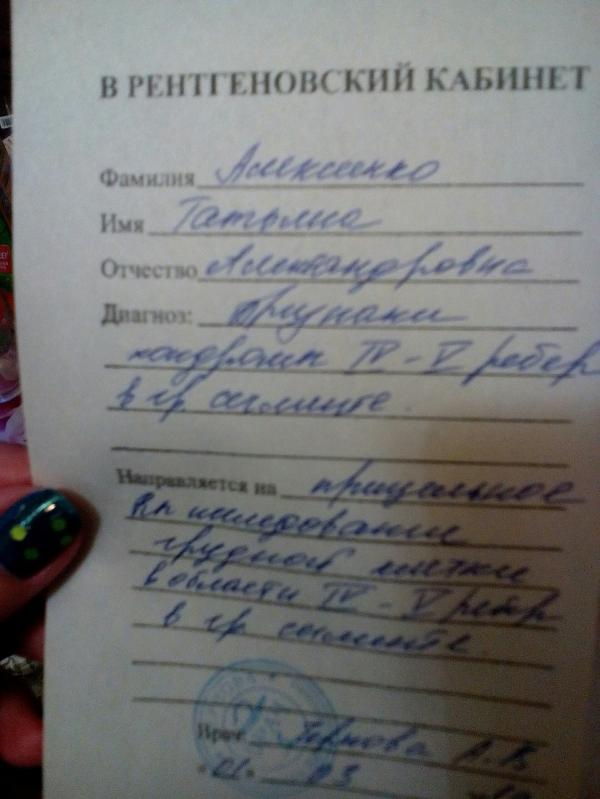 В РЕНТГЕНОВСКИЙ КАБИНЕТ
Фамилия Алексенко
Имя Татьяна
Отчество Александровна
Диагноз: Признаки
хондромы IV - V ребер
в гр. сегменте.
Направляется на прицельное
Rn исследование
грудной клетки
в области IV - V ребер
в гр. сегменте.
Врач А.В.
"01" 03